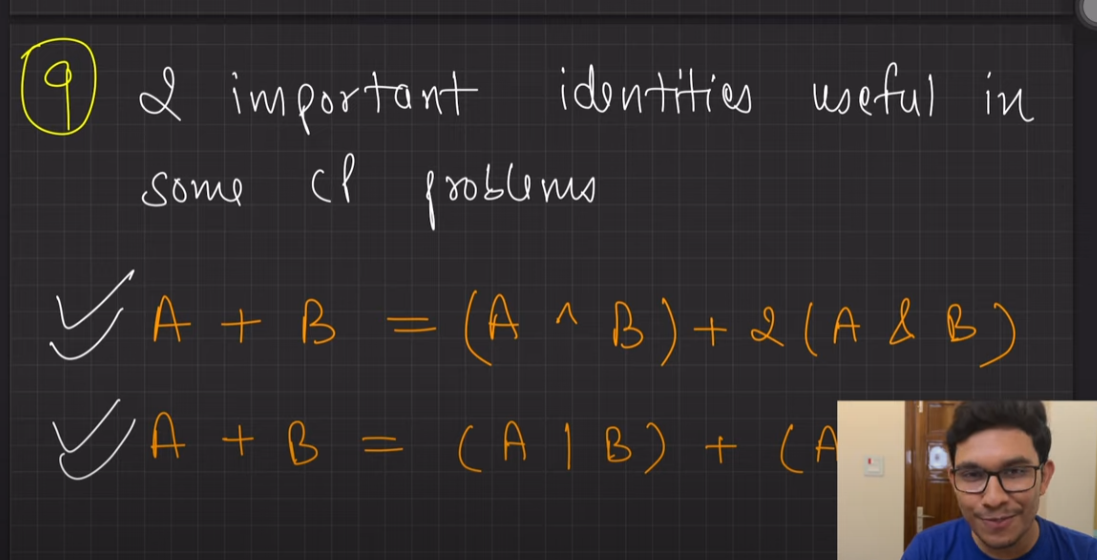 9 2 important identities useful in
some CP problems
A + B = (A ^ B) + 2(A & B)
A + B = (A | B) + (A